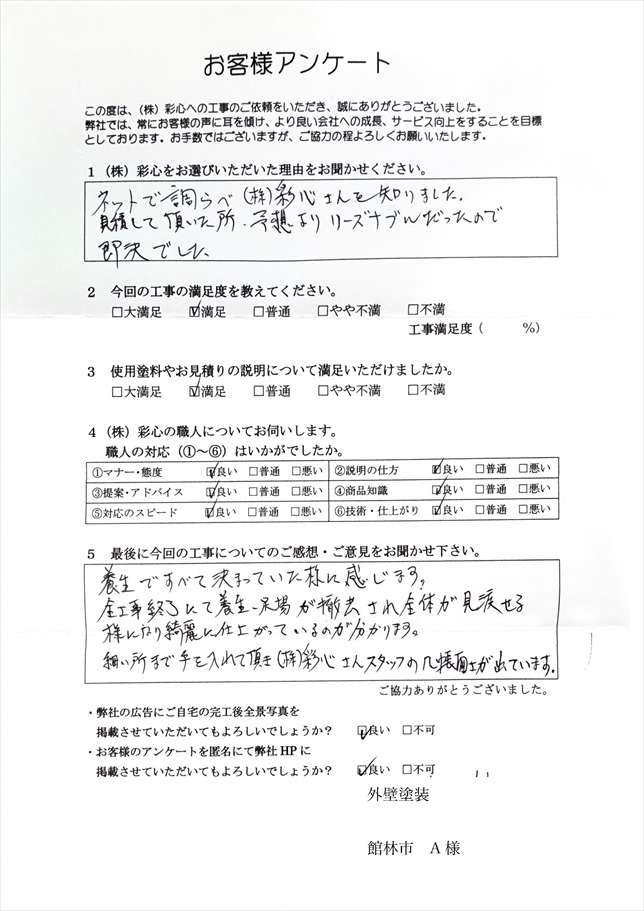 お客様アンケート
この度は、(株)彩心への工事のご依頼をいただき、誠にありがとうございました。
弊社では、常にお客様の声に耳を傾け、より良い会社への成長、サービス向上をすることを目標
としております。お手数ではございますが、ご協力の程よろしくお願いいたします。
1 (株)彩心をお選びいただいた理由をお聞かせください。
ネットで調らべ(株)彩心さんを知りました。
見積して頂いた所、予想よりリーズナブルだったので
即決でした。
2 今回の工事の満足度を教えてください。
□大満足 ☑満足 □普通 □やや不満 □不満
工事満足度( %)
3 使用塗料やお見積りの説明について満足いただけましたか。
□大満足 ☑満足 □普通 □やや不満 □不満
4 (株)彩心の職人についてお伺いします。
職人の対応(①～⑥)はいかがでしたか。
①マナー・態度 ☑良い □普通 □悪い ②説明の仕方 ☑良い □普通 □悪い
③提案・アドバイス ☑良い □普通 □悪い ④商品知識 ☑良い □普通 □悪い
⑤対応のスピード ☑良い □普通 □悪い ⑥技術・仕上がり ☑良い □普通 □悪い
5 最後に今回の工事についてのご感想・ご意見をお聞かせ下さい。
養生ですべて決まっていた様に感じます。
全工事終了にて養生・足場が撤去され全体が見渡せる
様になり綺麗に仕上がっているのが分かります。
細い所まで手を入れて頂き(株)彩心さんスタッフの几帳面さが出ています。
ご協力ありがとうございました。
・弊社の広告にご自宅の完工後全景写真を
掲載させていただいてもよろしいでしょうか? ☑良い □不可
・お客様のアンケートを匿名にて弊社HPに
掲載させていただいてもよろしいでしょうか? ☑良い □不可
外壁塗装
館林市 A様